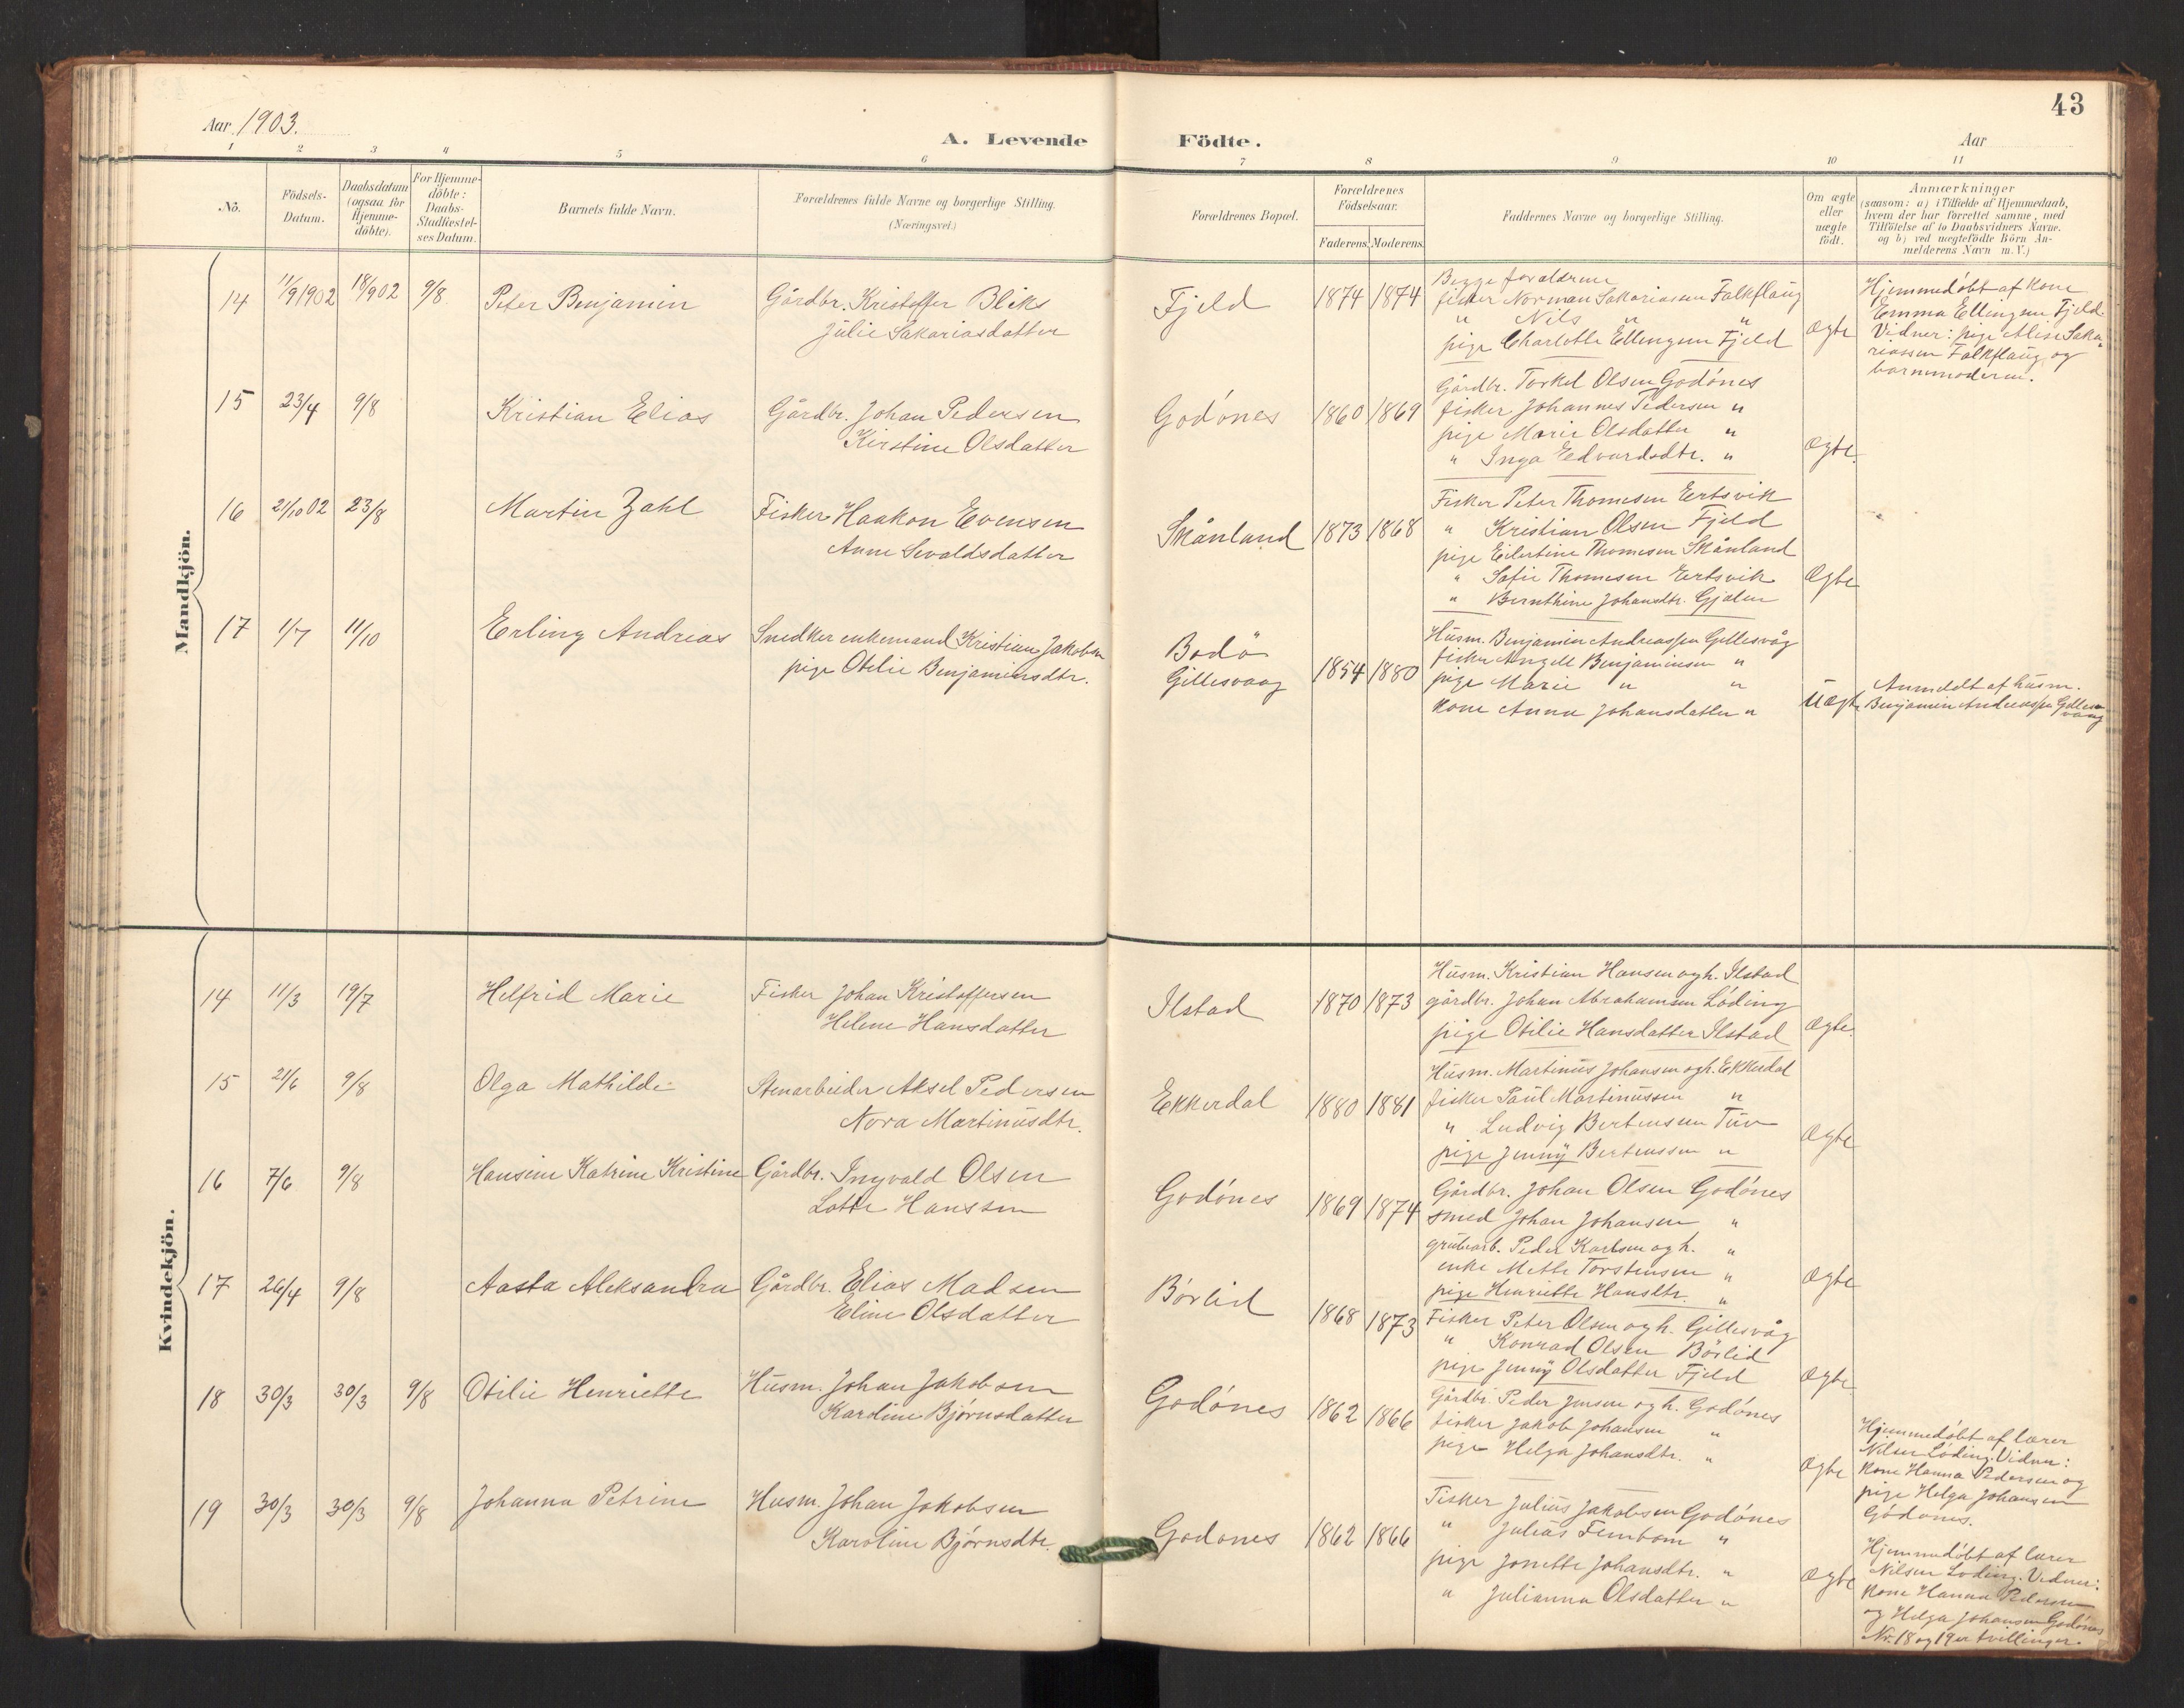 Aar 1903.
A. Levende Födte.
Aar
43
1 2 3 4 5 6 7 8 9 10 11
Nô.
Födsels-Datum.
Daabsdatum (ogsaa for Hjemme-döbte).
For Hjemme-döbte: Daabs-Stadfæstel-ses Datum.
Barnets fulde Navn.
Forældrenes fulde Navne og borgerlige Stilling. (Næringsvei.)
Forældrenes Bopæl.
Forældrenes Födselsaar.
Faderens. Moderens.
Faddernes Navne og borgerlige Stilling.
Om ægte eller uægte födt.
Anmærkninger
(saasom: a) i Tilfælde af Hjemmedaab,
hvem der har forrettet samme, med
Tilföielse af to Daabsvidners Navne.
og b) ved uægtefödte Börn An-
melderens Navn m.V.)
Mandkjön.
14 11/9 1902 18/9 02 9/8 Peter Benjamin
Gårdbr. Kristoffer Bliks
Julie Sakariasdatter
Fjeld 1874 1874
Begge forældrene
fisker Norman Sakariassen Falkflaug
" Nils " "
pige Charlotte Ellingsen Fjeld
Ægte
Hjemmedøbt af kone
Emma Ellingsen Fjeld.
Vidner: pige Alise Saka-
riassen Falkflaug og
barnmoderen.
15 23/4 9/8 Kristian Elias
Gårdbr. Johan Pedersen
Kirstine Olsdatter
Godønes 1860 1869
Gårdbr. Torkel Olsen Godønes
fisker Johannes Pedersen "
pige Marie Olsdatter "
" Inga Edvardsdtr. "
Ægte.
16 21/10 02 23/8 Martin Zahl
Fisker Haakon Evensen
Anne Sevaldsdatter
Skånland 1873 1868
Fisker Peter Thomesen Eertsvik
" Kristian Olsen Fjeld
pige Eilertine Thomesen Skånland
" Sofie Thomesen Eertsvik
" Bernthine Johansdtr. Gjælen
Ægte
17 1/7 11/10 Erling Andreas
Snedker enkemand Kristian Jakobsen
pige Otelie Benjaminsdtr.
Bodö
Gillesvaag
1854 1880
Husm. Benjamin Andreassen Gillesvåg
fisker Angell Benjaminsen "
pige Marie " "
kone Anna Johansdatter "
Uægte
Anmeldt af husm.
Benjamin Andreassen Gilles-
vaag
Kvindekjön.
14 11/3 19/7 Helfrid Marie
Fisker Johan Kristoffersen
Helene Hansdatter
Ilstad 1870 1873
Husm. Kristian Hansen og h. Ilstad
gårdbr. Johan Abrahamsen Løding
pige Otilie Hansdatter Ilstad
Ægte.
15 21/6 9/8 Olga Mathilde
Stenarbeider Aksel Pedersen
Nora Martinusdtr.
Ekkerdal 1880 1881
Husm. Martinus Johansen og h. Ekkerdal
fisker Paul Martinussen "
" Ludvig Bertensen Tuv
pige Jenny Bertenssen "
Ægte
16 7/6 9/8 Hansine Katrine Kristine
Gårdbr. Ingvald Olsen
Lotte Hanssen
Godønes 1869 1874
Gårdbr. Johan Olsen Godønes
smed Johan Johansen "
grubearb. Peder Karlsen og h. "
enke Mette Torstensen "
pige Henriette Hansdtr. "
Ægte
17 26/4 9/8 Aasta Aleksandra
Gårdbr. Elias Madsen
Eline Olsdatter
Børlid 1868 1873
Fisker Peter Olsen og h. Gillesvåg
" Konrad Olsen Börlid
pige Jenny Olsdatter Fjeld
Ægte
18 30/3 30/3 9/8 Otilie Henriette
Husm. Johan Jakobsen
Karoline Bjørnsdatter
Godønes 1862 1866
Gårdbr. Peder Jensen og h. Godønes
fisker Jakob Johansen "
pige Helga Johansdtr. "
Ægte
Hjemmedøbt af lærer
Nilsen Løding. Vidner:
kone Hanna Pedersen og
pige Helga Johansen
Godønes.
19 30/3 30/3 9/8 Johanna Petrine
Husm. Johan Jakobsen
Karoline Bjørnsdtr.
Godønes 1862 1866
Fisker Julius Jakobsen Godønes
" Julius Fembom "
pige Jonette Johansdtr. "
" Julianna Olsdatter "
Ægte
Hjemmedøbt af lærer
Nilsen Løding. Vidner:
kone Hanna Pedersen
og Helga Johansen Godønes
Nr. 18 og 19 er tvillinger.